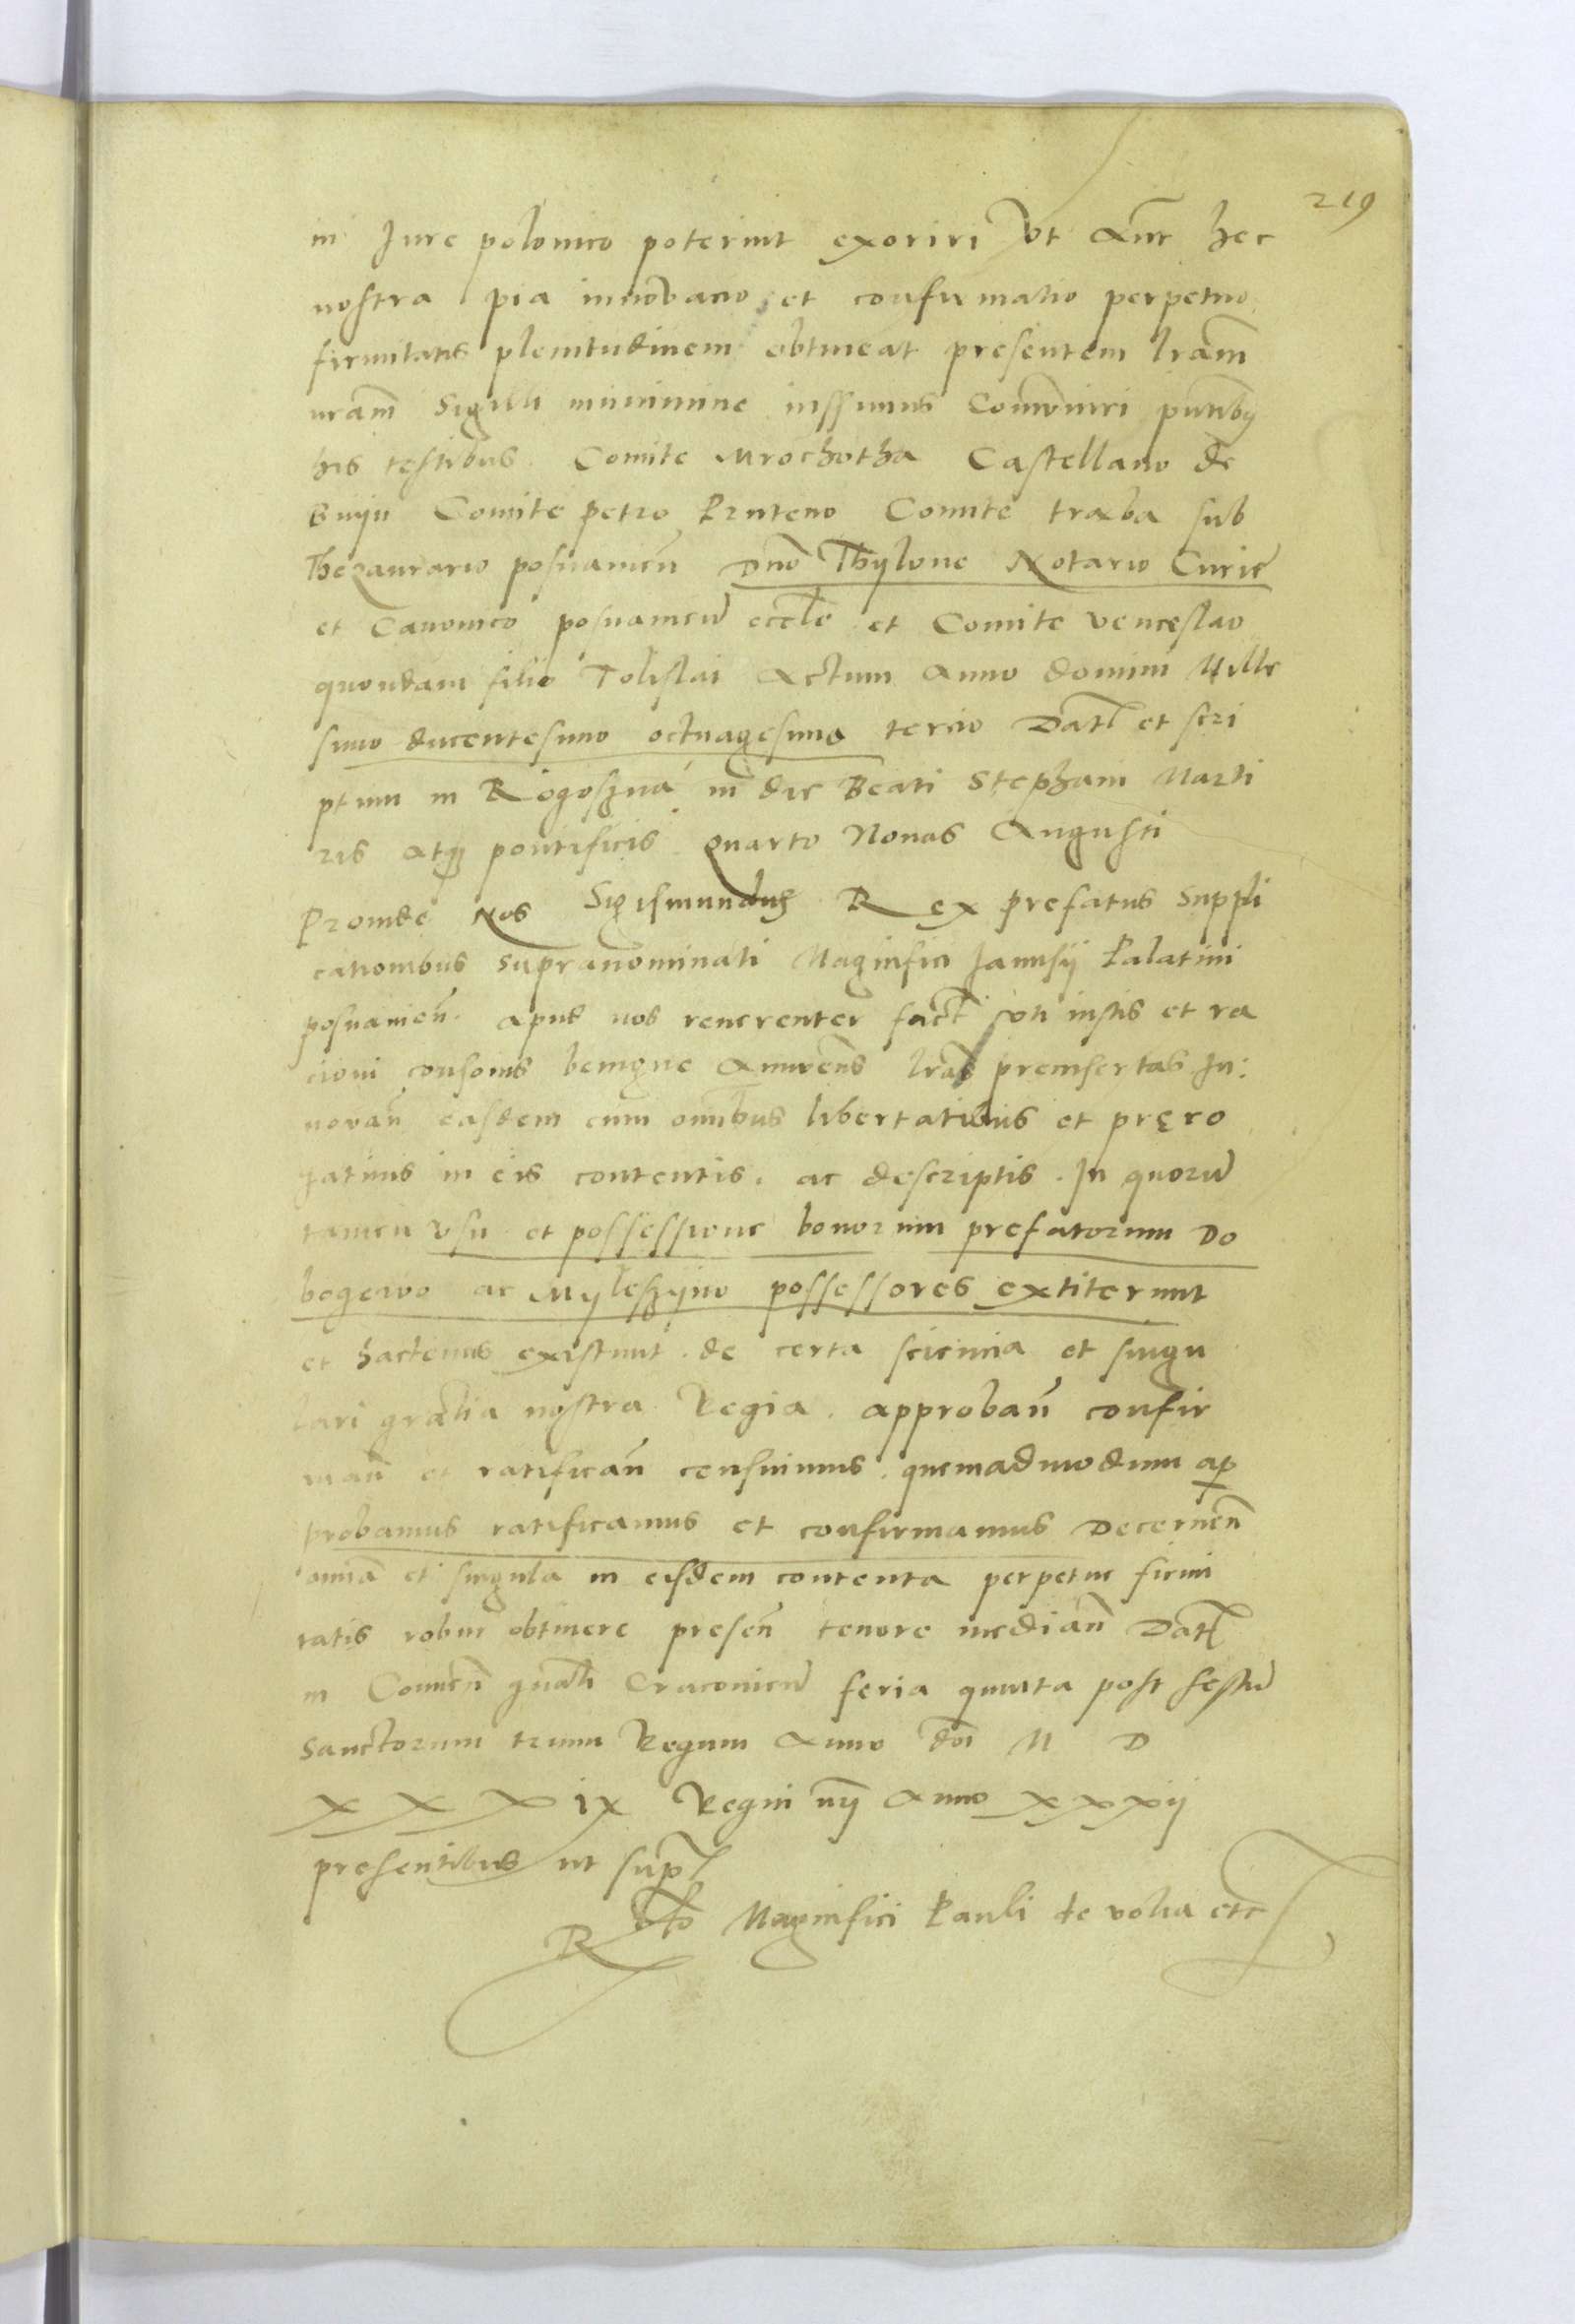 219
in Jure polonico poterint exoriri Vt autem hec
nostra pia innovacio et confirmatio perpetuo
firmitatis plenitudinem obtineat presentem lram
nram Sigilli munimine iussimus Comuniri pntibus
his testibus Comite Mrochotha Castellano de
Bnyn Comite petro Pruteno Comite traba sub
Thezaurario posnanien Dno Thylone Notario Curie
et Canonico posnanien eccle et Comite venceslao
quondam filio Tolislai Actum Anno domini Mille
simo ducentesimo octuagesimo tercio Dat et scri
ptum in Rogoszna in die Beati Stephani Marti
ris atq pontificis quarto Nonas Augusti
Proinde Nos Sigismundus Rex prefatus suppli
cationibus supranominati Magnifici Janusij Palatini
posnanien apud nos reuerenter fact vti iustis et ra
cioni consonis benigne annuens lras preinsertas In
novan easdem cum omibus libertatibus et prero
gatiuis in eis contentis ac descriptis. In quorum
tamen vsu et possessione bonorum prefatorum Do
bogewo ac Myleszyno possessores extiterunt
et hactenus existunt de certa sciencia et singu
lari gratia nostra Regia approban confir
man et ratifican censuimus quemadmodum ap
probamus ratificamus et confirmamus Decernen
omia et singula in eisdem contenta perpetue firmi
tatis robur obtinere presen tenore median Dat
in Conuen gnali Cracouien feria quinta post festum
Sanctorum trium Regum Anno doi M D
XXXIX Regni nri Anno xxxij
presentibus ut supra
Rlto Magnifici Pauli de volia etc